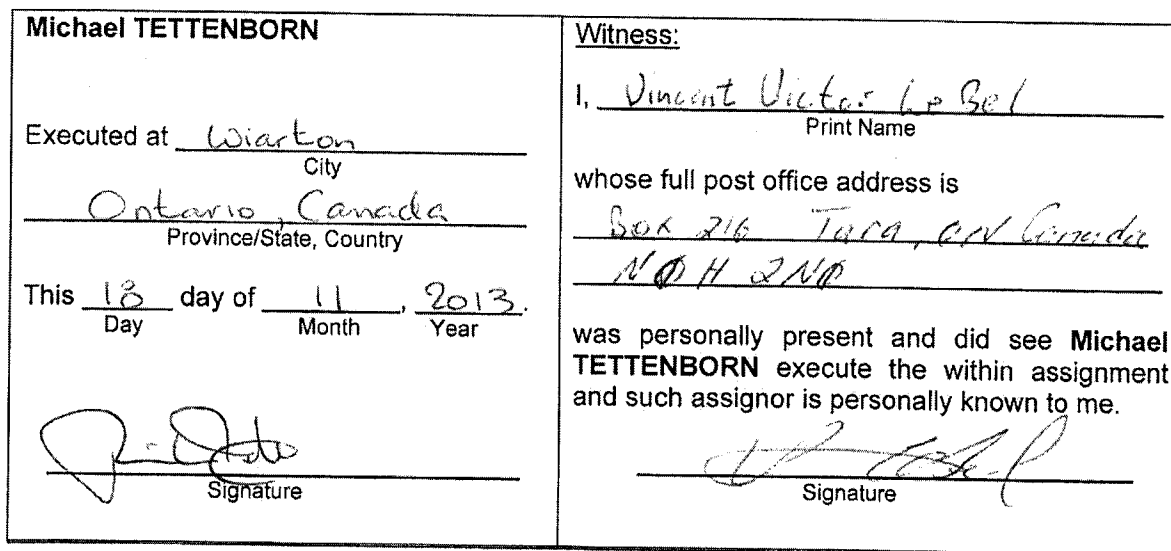 Michael TETTENBORN
Executed at Wiarton
City
Ontario, Canada
Province/State, Country
This 18 day of 11, 2013.
Day Month Year
Signature
Witness:
I, Vincent Victor Le Bel
Print Name
whose full post office address is
Box 216 Tara, ON Canada
N0H 2N0
was personally present and did see Michael
TETTENBORN execute the within assignment
and such assignor is personally known to me.
Signature